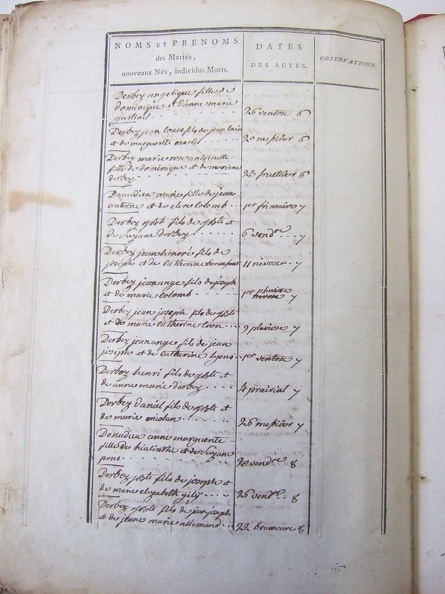 NOMS ET PRÉNOMS
des Mariés,
nouveaux Nés, individus Morts.
DATES
DES ACTES.
OBSERVATIONS.
Derbez angelique fille de
dominique et d'anne marie
26 ventose 6
Derbez jean louis fils de jean louis
et de marguerite 20 messidor 6
Derbez marie rose antoinette
fille de dominique et de mariane
derbez 24 fructidor 6
Donadieu marie fille de jean
antoine et de clere colomb 1er frimaire 7
Derbez
de Suzane derbez 6 vendre 7
Derbez jean honoré fils de
joseph et de catherine 11 nivose 7
Derbez jean ange fils de joseph
et de marie colomb 1er pluviose 7
Derbez jean joseph fils de
et de marie catherine 9 pluviose 7
Derbez jean ange fils de jean
joseph et de catherine 1er ventose 7
Derbez henri fils de
de anne marie derbez 4 prairial 7
Derbez Daniel fils de et
de marie 26 messidor 7
Donadieu anne marguerite
fille de et de Suzane
20 vendre 8
Derbez fils de joseph et
de marie elizabeth 26 vendre 8
Derbez fils de jean joseph
et de jeane marie allemand 22 brumaire 8